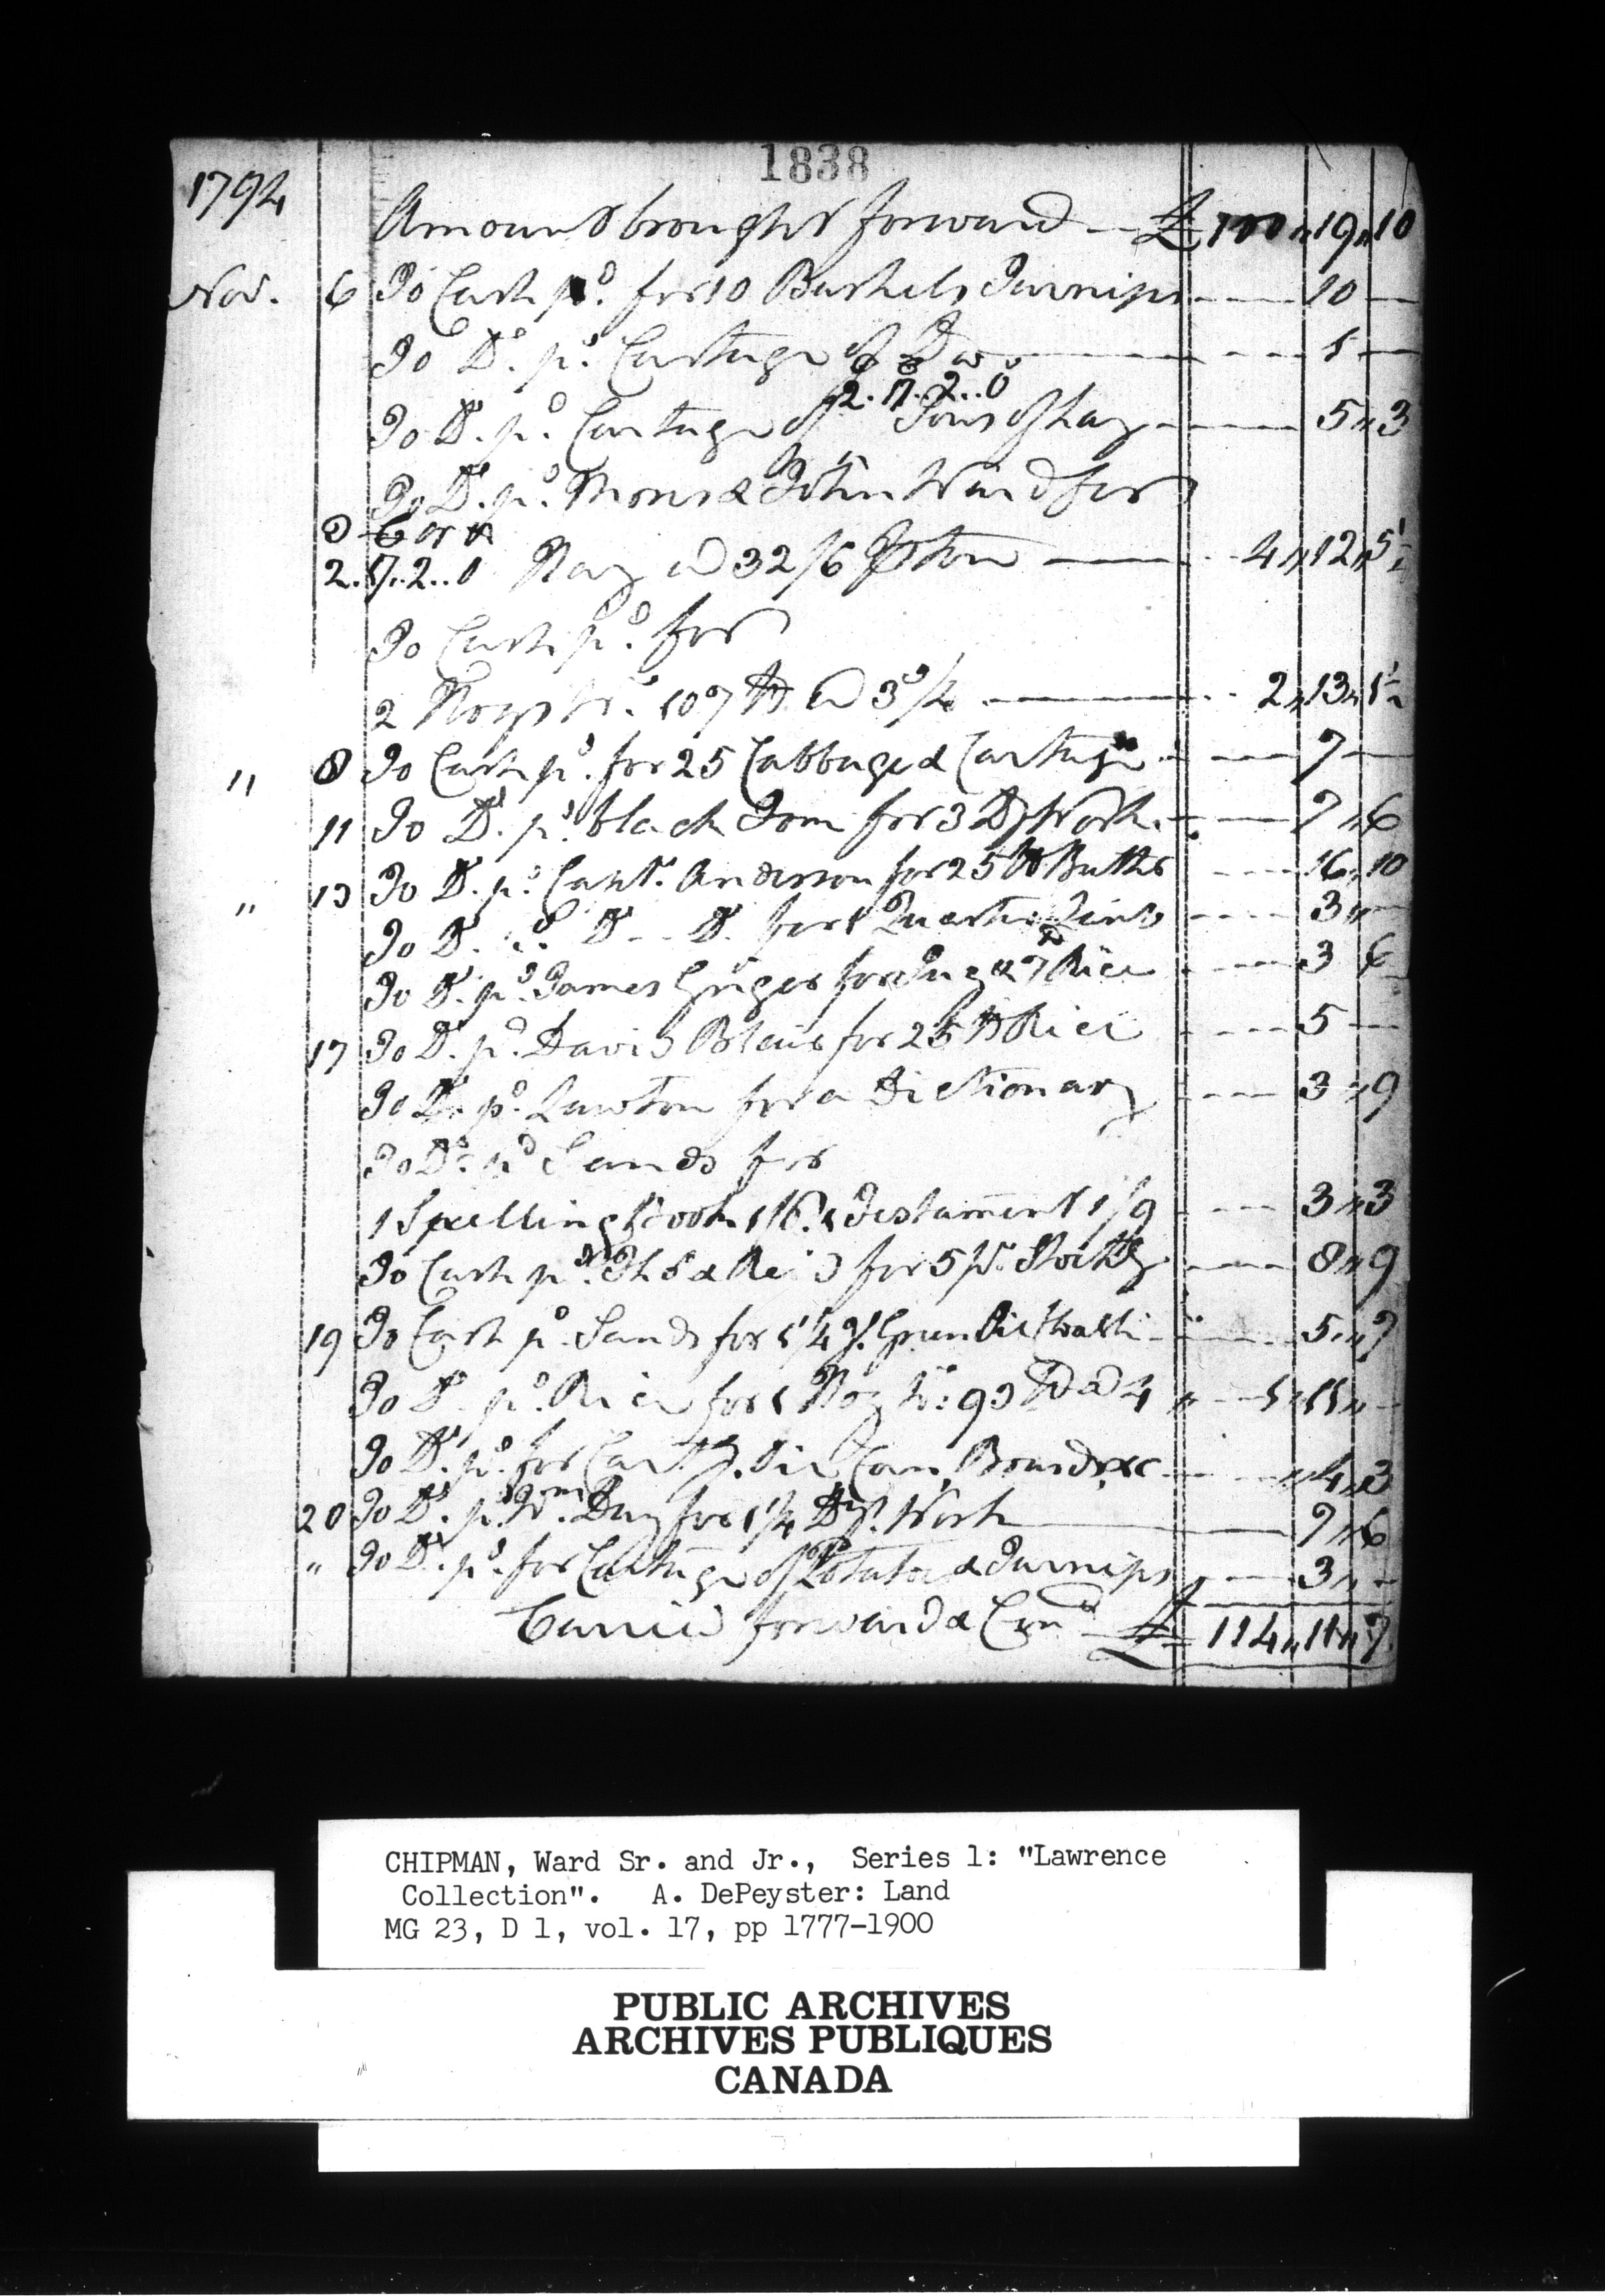 1838
1794
Amount brought forward — £100〃19〃10
Nov. 6 To Cash pd. for 10 Bushels Turnips — 10 —
To Do. pd. Cartage of Do — 1 —
2.17.2..0
To Do. pd. Cartage of Tons of hay — 5〃3
To Do. pd. Thomas & John Ward for
2.17..2..0 Hay @ 32/6 p ton — 4〃12〃5½
To Cash pd. for
2 Hogs wt. 107 lb @ 3d/4 — 2〃13〃1½
〃 8 To Cash pd. for 25 Cabbage & Cartage — 7 —
〃 11 To Do. pd. black Tom for 3 Ds Work — 7〃6
〃 13 To Do. pd. Capt. Anderson for 25 lb Butter — 16〃10
To Do. pd. Do - Do. for 1 Quarter — 3〃—
To Do. pd. James for & 7 lb Rice — 3 6
17 To Do. pd. David Blair for 25 lb Rice — 5 —
To Do. pd. Lawton for a Dictionary — 3〃9
To Do. pd Sands for
1 Spelling Book 1/6. 1 Testament 1/9 — 3〃3
To Cash pd. & Reid for 5 pr. — 8〃9
19 To Cash pd. Sands for 1¼ yd. Green — 5〃7
To Do. pd. Rice for 1 Hog wt: 93 lb @ 4 〃 — 1〃11〃-
To Do. pd. for — 〃4〃3
20 To Do. pd. Wm. Day for 1¼ Dys. Work — 7〃6
〃 To Do. pd. for Cartage of Potatoes & Turnips — 3〃-
Carried forward & Cond £ 114〃11〃7
CHIPMAN, Ward Sr. and Jr., Series 1: "Lawrence
Collection". A. DePeyster: Land
MG 23, D 1, vol. 17, pp 1777-1900
PUBLIC ARCHIVES
ARCHIVES PUBLIQUES
CANADA